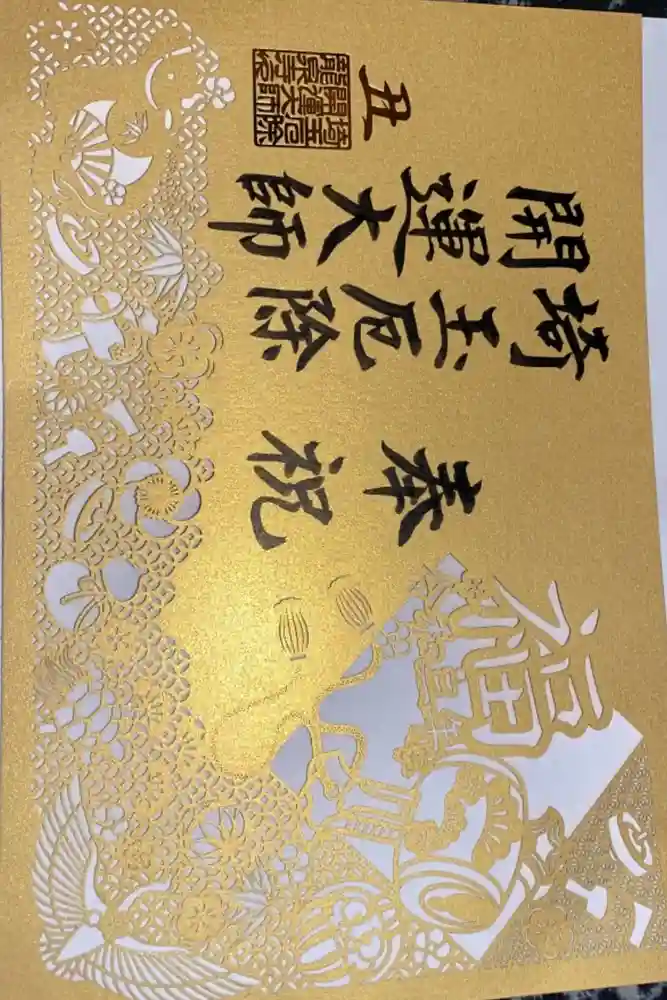 福
奉祝
埼玉厄除
開運大師
丑
埼玉厄除
開運大師
龍泉寺